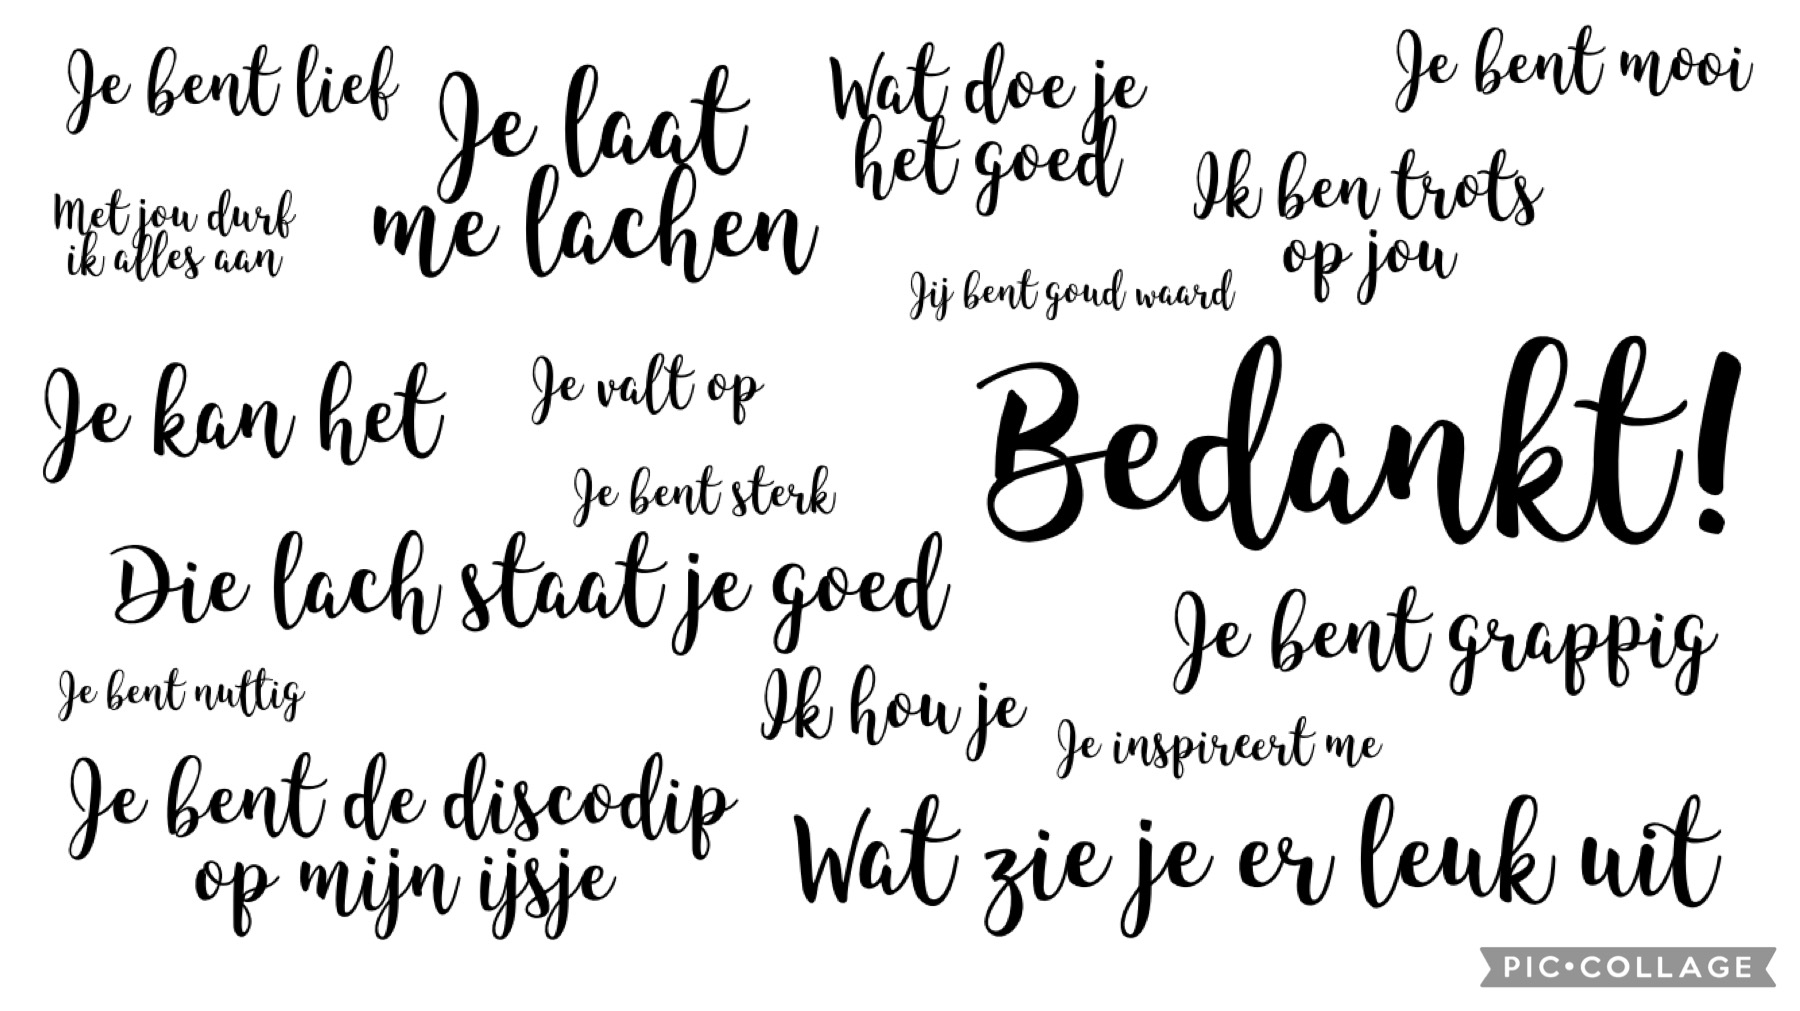 Je bent lief
Je laat
me lachen
Wat doe je
het goed
Je bent mooi
Met jou durf
ik alles aan
Ik ben trots
op jou
Jij bent goud waard
Je kan het
Je valt op
Bedankt!
Je bent sterk
Die lach staat je goed
Je bent grappig
Je bent nuttig
Ik hou je
Je inspireert me
Je bent de discodip
op mijn ijsje
Wat zie je er leuk uit
PIC•COLLAGE